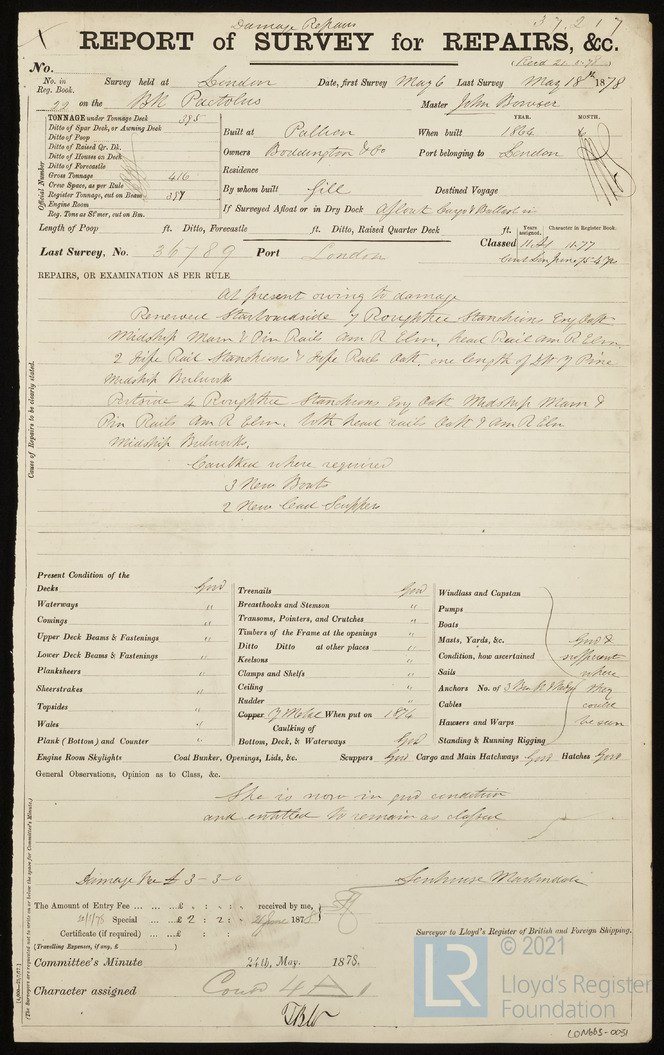 Damage Repairs
37217
REPORT of SURVEY for REPAIRS, &c.
No.
No. in Reg. Book. Survey held at London Date, first Survey May 6 Last Survey May 18th 1878
22 on the Bk Pactolus Master John Bowser
TONNAGE under Tonnage Deck 395
Ditto of Spar Deck, or Awning Deck
Ditto of Poop
Ditto of Raised Qr. Dk.
Ditto of Houses on Deck
Ditto of Forecastle
Gross Tonnage 416
Crew Space, as per Rule
Register Tonnage, cut on Beam 397
Engine Room
Reg. Tons as St'mer, cut on Bm.
Official Number
YEAR. MONTH.
Built at Pallion When built 1864
Owners Boddington & Co Port belonging to London
Residence
By whom built Gill Destined Voyage
If Surveyed Afloat or in Dry Dock Afloat Cargo & Ballast in
Length of Poop ft. Ditto, Forecastle ft. Ditto, Raised Quarter Deck ft.
Years assigned. Character in Register Book.
Last Survey, No. 36789 Port London Classed 11.77
REPAIRS, OR EXAMINATION AS PER RULE
At present owing to damage
Renewed Starboardside 7 Roughtree Stanchions Eng Oak
Midship Main & Pin Rails Am R Elm, head Rail Am R Elm,
2 Hfse Rail Stanchions & Hfse Rails Oak, one length of Y Pine
Midship Bulwarks
Portside 4 Roughtree Stanchions Eng Oak Midship Main &
Pin Rails Am R Elm. Both head rails Oak & Am R Elm
Midship Bulwks.
Caulked where required
3 New Boats
2 New Lead Scuppers
Cause of Repairs to be clearly stated.
Present Condition of the
Decks Good
Waterways "
Comings "
Upper Deck Beams & Fastenings "
Lower Deck Beams & Fastenings "
Planksheers "
Sheerstrakes "
Topsides "
Wales "
Plank (Bottom) and Counter "
Treenails Good
Breasthooks and Stemson "
Transoms, Pointers, and Crutches "
Timbers of the Frame at the openings "
Ditto Ditto at other places "
Keelsons "
Clamps and Shelfs "
Ceiling "
Rudder "
Copper Y Metal When put on 1876
Caulking of
Bottom, Deck, & Waterways Good
Windlass and Capstan
Pumps
Boats
Masts, Yards, &c. Good &
Condition, how ascertained sufficient
Sails where
Anchors No. of 3 they
Cables could
Hawsers and Warps be seen
Standing & Running Rigging
Engine Room Skylights Coal Bunker, Openings, Lids, &c. Scuppers Good Cargo and Main Hatchways Good Hatches Good
General Observations, Opinion as to Class, &c.
She is now in good condition
and entitled to remain as classed
Damage Fee £ 3-3-0
Senhouse Martindale
The Amount of Entry Fee ... ... ... £ : : received by me,
Special ... ... £ 2 : 2 : June 1878
Certificate (if required) ... ... £ : :
(Travelling Expenses, if any, £ )
Surveyor to Lloyd's Register of British and Foreign Shipping.
Committee's Minute 24th May. 1878.
Character assigned Cond 4 A 1
(The Surveyors are requested not to write on or below the space for Committee's Minute.)
LR
© 2021
Lloyd's Register
Foundation
LON665-0051